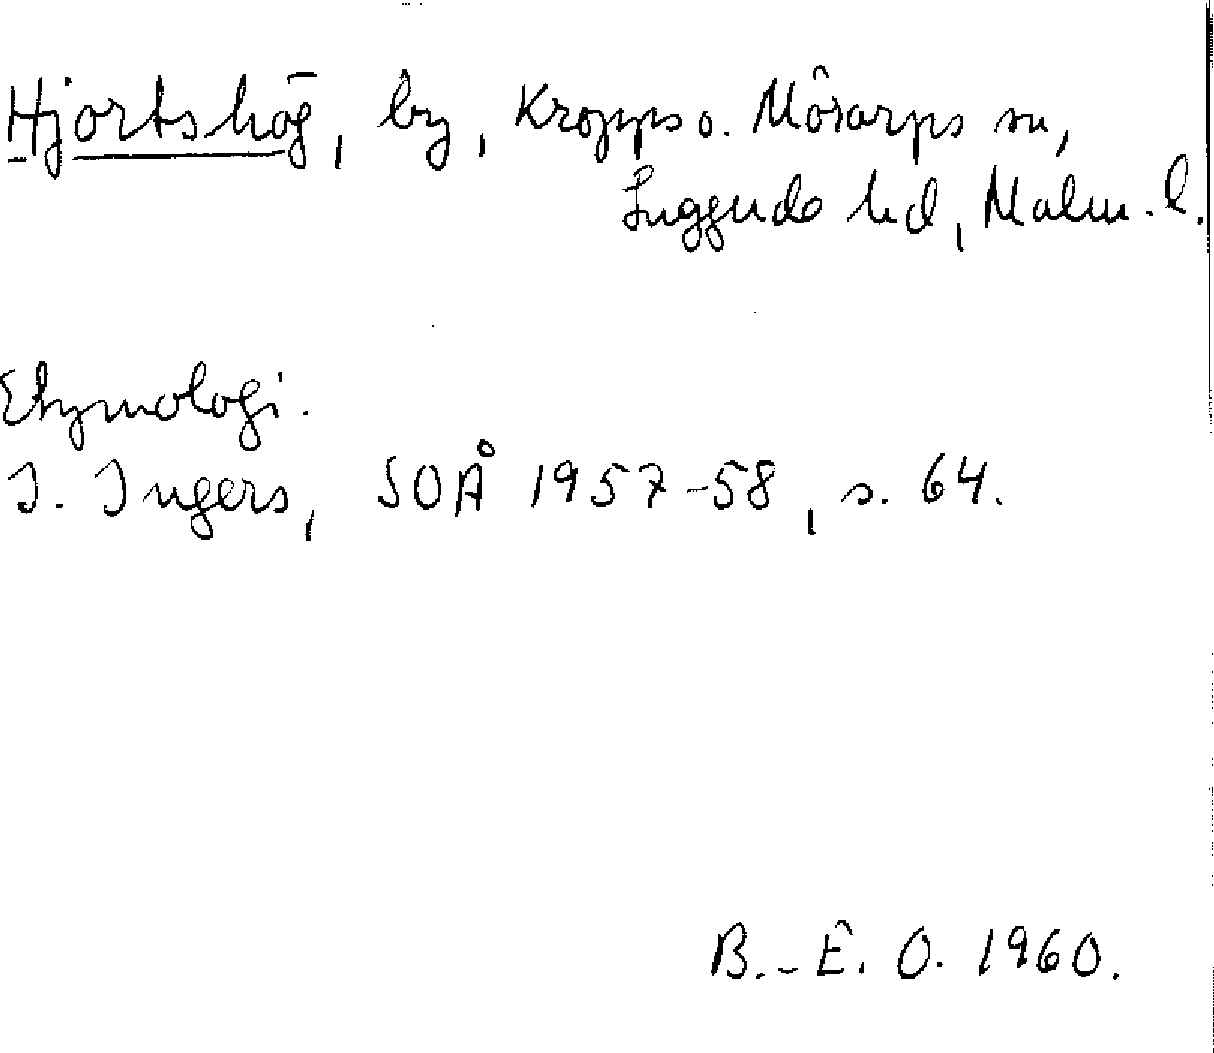 Hjortshög, by, Kropps o. Mörarps sn,
Luggude hd, Malm. l.
Etymologi.
I. Ingers, SOÅ 1957-58, s. 64.
B.-E. O. 1960.